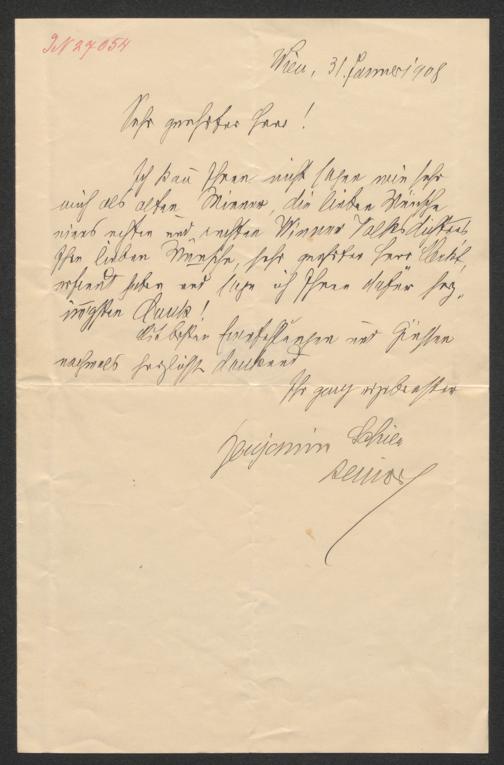 IN 27054
Wien, 31. Jänner 1908
Sehr geehrter Herr!
Ich kann Ihnen nicht sagen wie sehr
mich als alten Wiener die lieben Wünsche
eines echten und rechten Wiener Volksdichters
Ihre lieben Wünsche, sehr geehrter Herr
erfreut haben und sage ich Ihnen dafür her-
innigsten Dank!
Die besten Empfehlungen und Grüssen
nochmals herzlichst dankend
Ihr ganz ergebenster
Benjamin Schier
senior